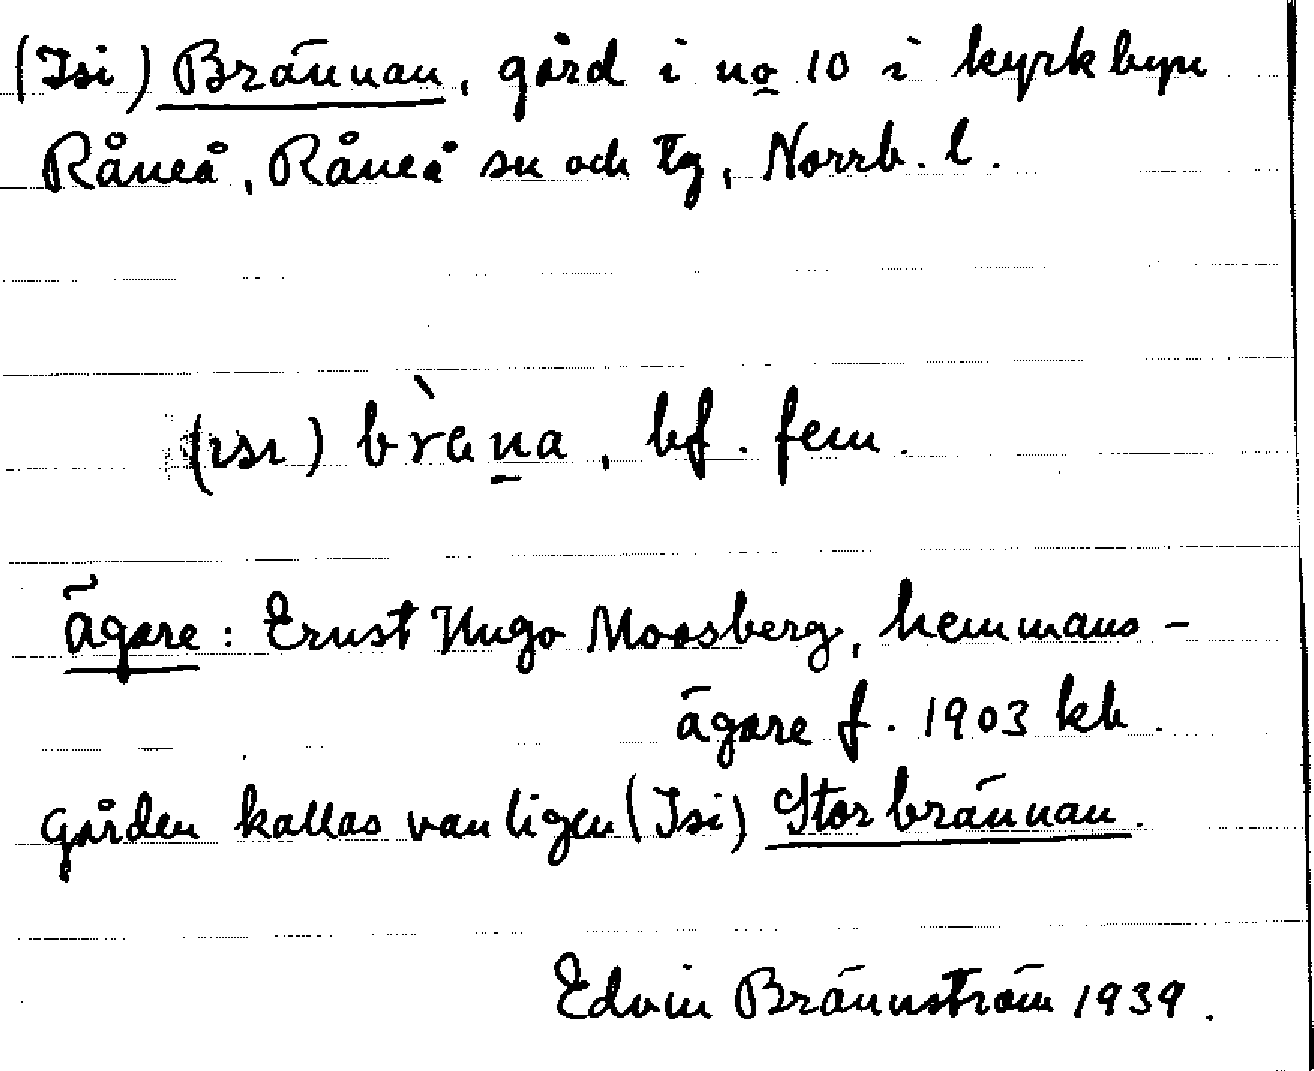 (Isi) Brännan, gård i no 10 i kyrkbyn
Råneå, Råneå sn och tg, Norrb. l.
(ısı) brὰna, bf. fem.
Ägare: Ernst Hugo Moosberg, hemmans-
ägare f. 1903 kb.
Gården kallas vanligen (Isi) Storbrännan.
Edvin Brännström 1939.